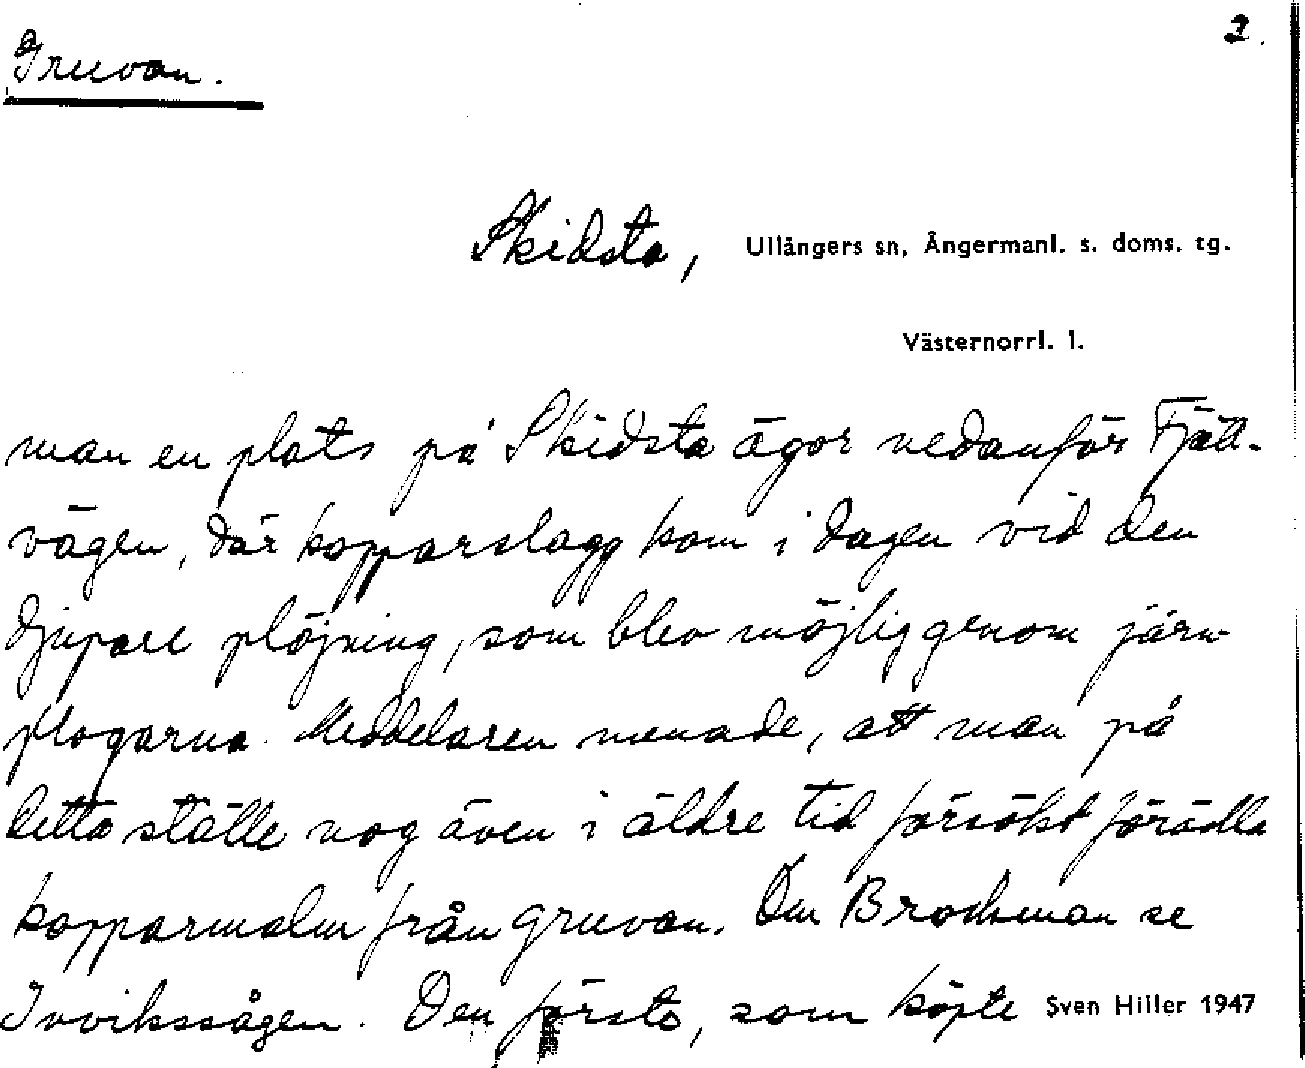 2.
Gruvan.
Skidsta, Ullångers sn, Ångermanl. s. doms. tg.
Västernorrl. l.
man en plats på Skidsta ägor nedanför Fjätt-
vägen, där kopparslagg kom i dagen vid den
djupare plöjning, som blev möjlig genom järn-
plogarna. Meddelaren menade, att man på
detta ställe nog även i äldre tid försökt förädla
kopparmalm från gruvan. Om Brockman se
Invikssågen. Den första, som köpte Sven Hiller 1947